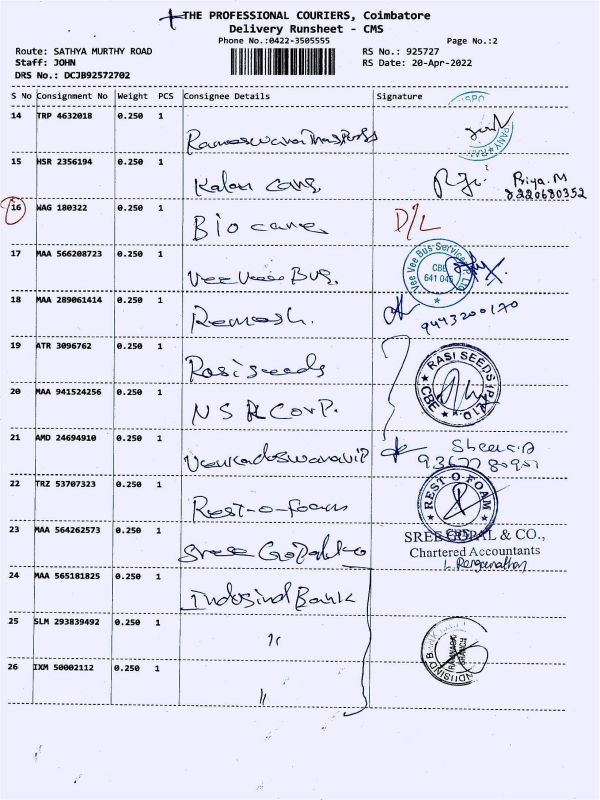 THE PROFESSIONAL COURIERS, Coimbatore
Delivery Runsheet - CMS
Phone No.:0422-3505555 Page No.:2
Route: SATHYA MURTHY ROAD RS No.: 925727
Staff: JOHN RS Date: 20-Apr-2022
DRS No.: DCJB92572702
S No Consignment No Weight PCS Consignee Details Signature
14 TRP 4632018 0.250 1
15 HSR 2356194 0.250 1 Kalan cons. Priya.M
8220680352
16 WAG 180322 0.250 1 Bio care D/L
17 MAA 566208723 0.250 1 Vee Vee Bus. Vee Vee Bus Service CBE 641 045
18 MAA 289061414 0.250 1 Ramesh. 9443200170
19 ATR 3096762 0.250 1 Rasi seeds RASI SEEDS (P) LTD CBE
20 MAA 941524256 0.250 1 NSR Corp.
21 AMD 24694910 0.250 1
22 TRZ 53707323 0.250 1 Rest-o-foam REST-O-FOAM
23 MAA 564262573 0.250 1 Sree Gopal & Co SREE GOPAL & CO.,
Chartered Accountants
24 MAA 565181825 0.250 1 Indusind Bank
25 SLM 293839492 0.250 1 "
26 IXM 50002112 0.250 1 "